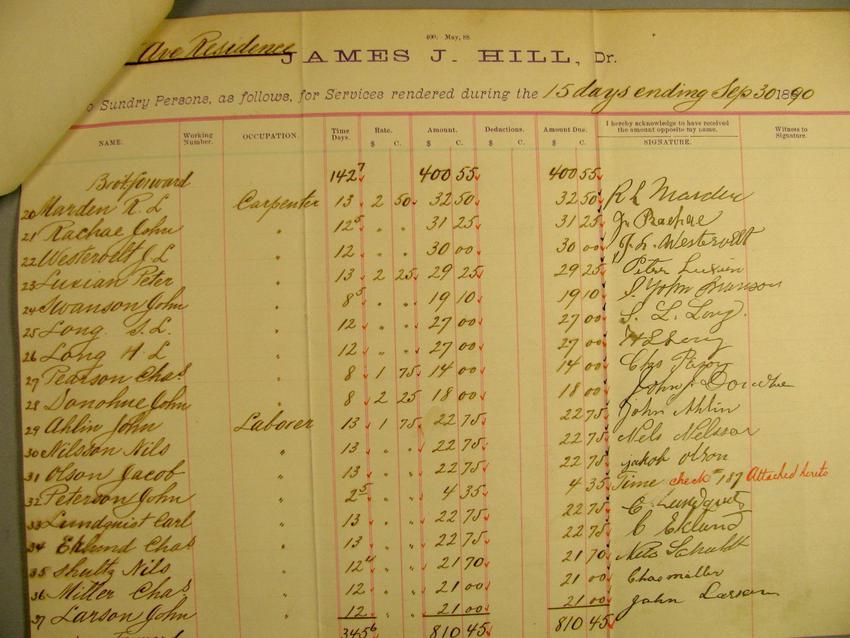 400. May, 88.
Ave Residence
JAMES J. HILL, Dr.
o Sundry Persons, as follows, for Services rendered during the 15 days ending Sep 30 1890
NAME. Working Number. OCCUPATION. Time Days. Rate. $ C. Amount. $ C. Deductions. $ C. Amount Due. $ C. I hereby acknowledge to have received the amount opposite my name. SIGNATURE. Witness to Signature.
Brot forward 142 7 400 55 400 55
20 Marden R L Carpenter 13 2 50 32 50 32 50 R L Marden
21 Rachae John " 12 5 " " 31 25 31 25
22 Westervelt J L " 12 " " 30 00 30 00 J. L. Westervelt
23 Luxian Peter " 13 2 25 29 25 29 25 Peter Luxien
24 Swanson John " 8 5 " " 19 10 19 10 John Swanson
25 Long S. L. " 12 " " 27 00 27 00 S. L. Long.
26 Long H L " 12 " " 27 00 27 00
27 Pearson Chas " 8 1 75 14 00 14 00 Chas
28 Donohue John " 8 2 25 18 00 18 00 John J. Donohue
29 Ahlin John Laborer 13 1 75 22 75 22 75 John Ahlin
30 Nilsson Nils " 13 " " 22 75 22 75 Nels Nelsson
31 Olson Jacob " 13 " " 22 75 22 75 jakob Olson
32 Peterson John " 2 5 " " 4 35 4 35 Time check # 187 Attached hereto
33 Lundquist Carl " 13 " " 22 75 22 75 C Lundquist
34 Eklund Chas " 13 " " 22 75 22 75 C Eklund
35 Shultz Nils " 12 4 " " 21 70 21 70 Nils Schultt
36 Miller Chas " 12 " " 21 00 21 00 Chas miller
37 Larson John " 12 " " 21 00 21 00 John Larson
345 6 810 45 810 45